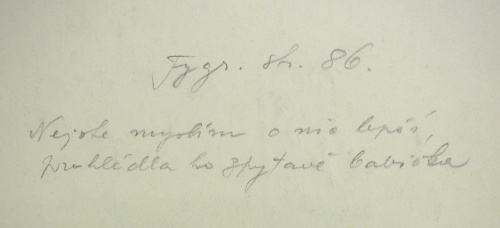 Tygr. str. 86.
Nejste myslím o nic lepší,
prohlédla ho zpytavě babička